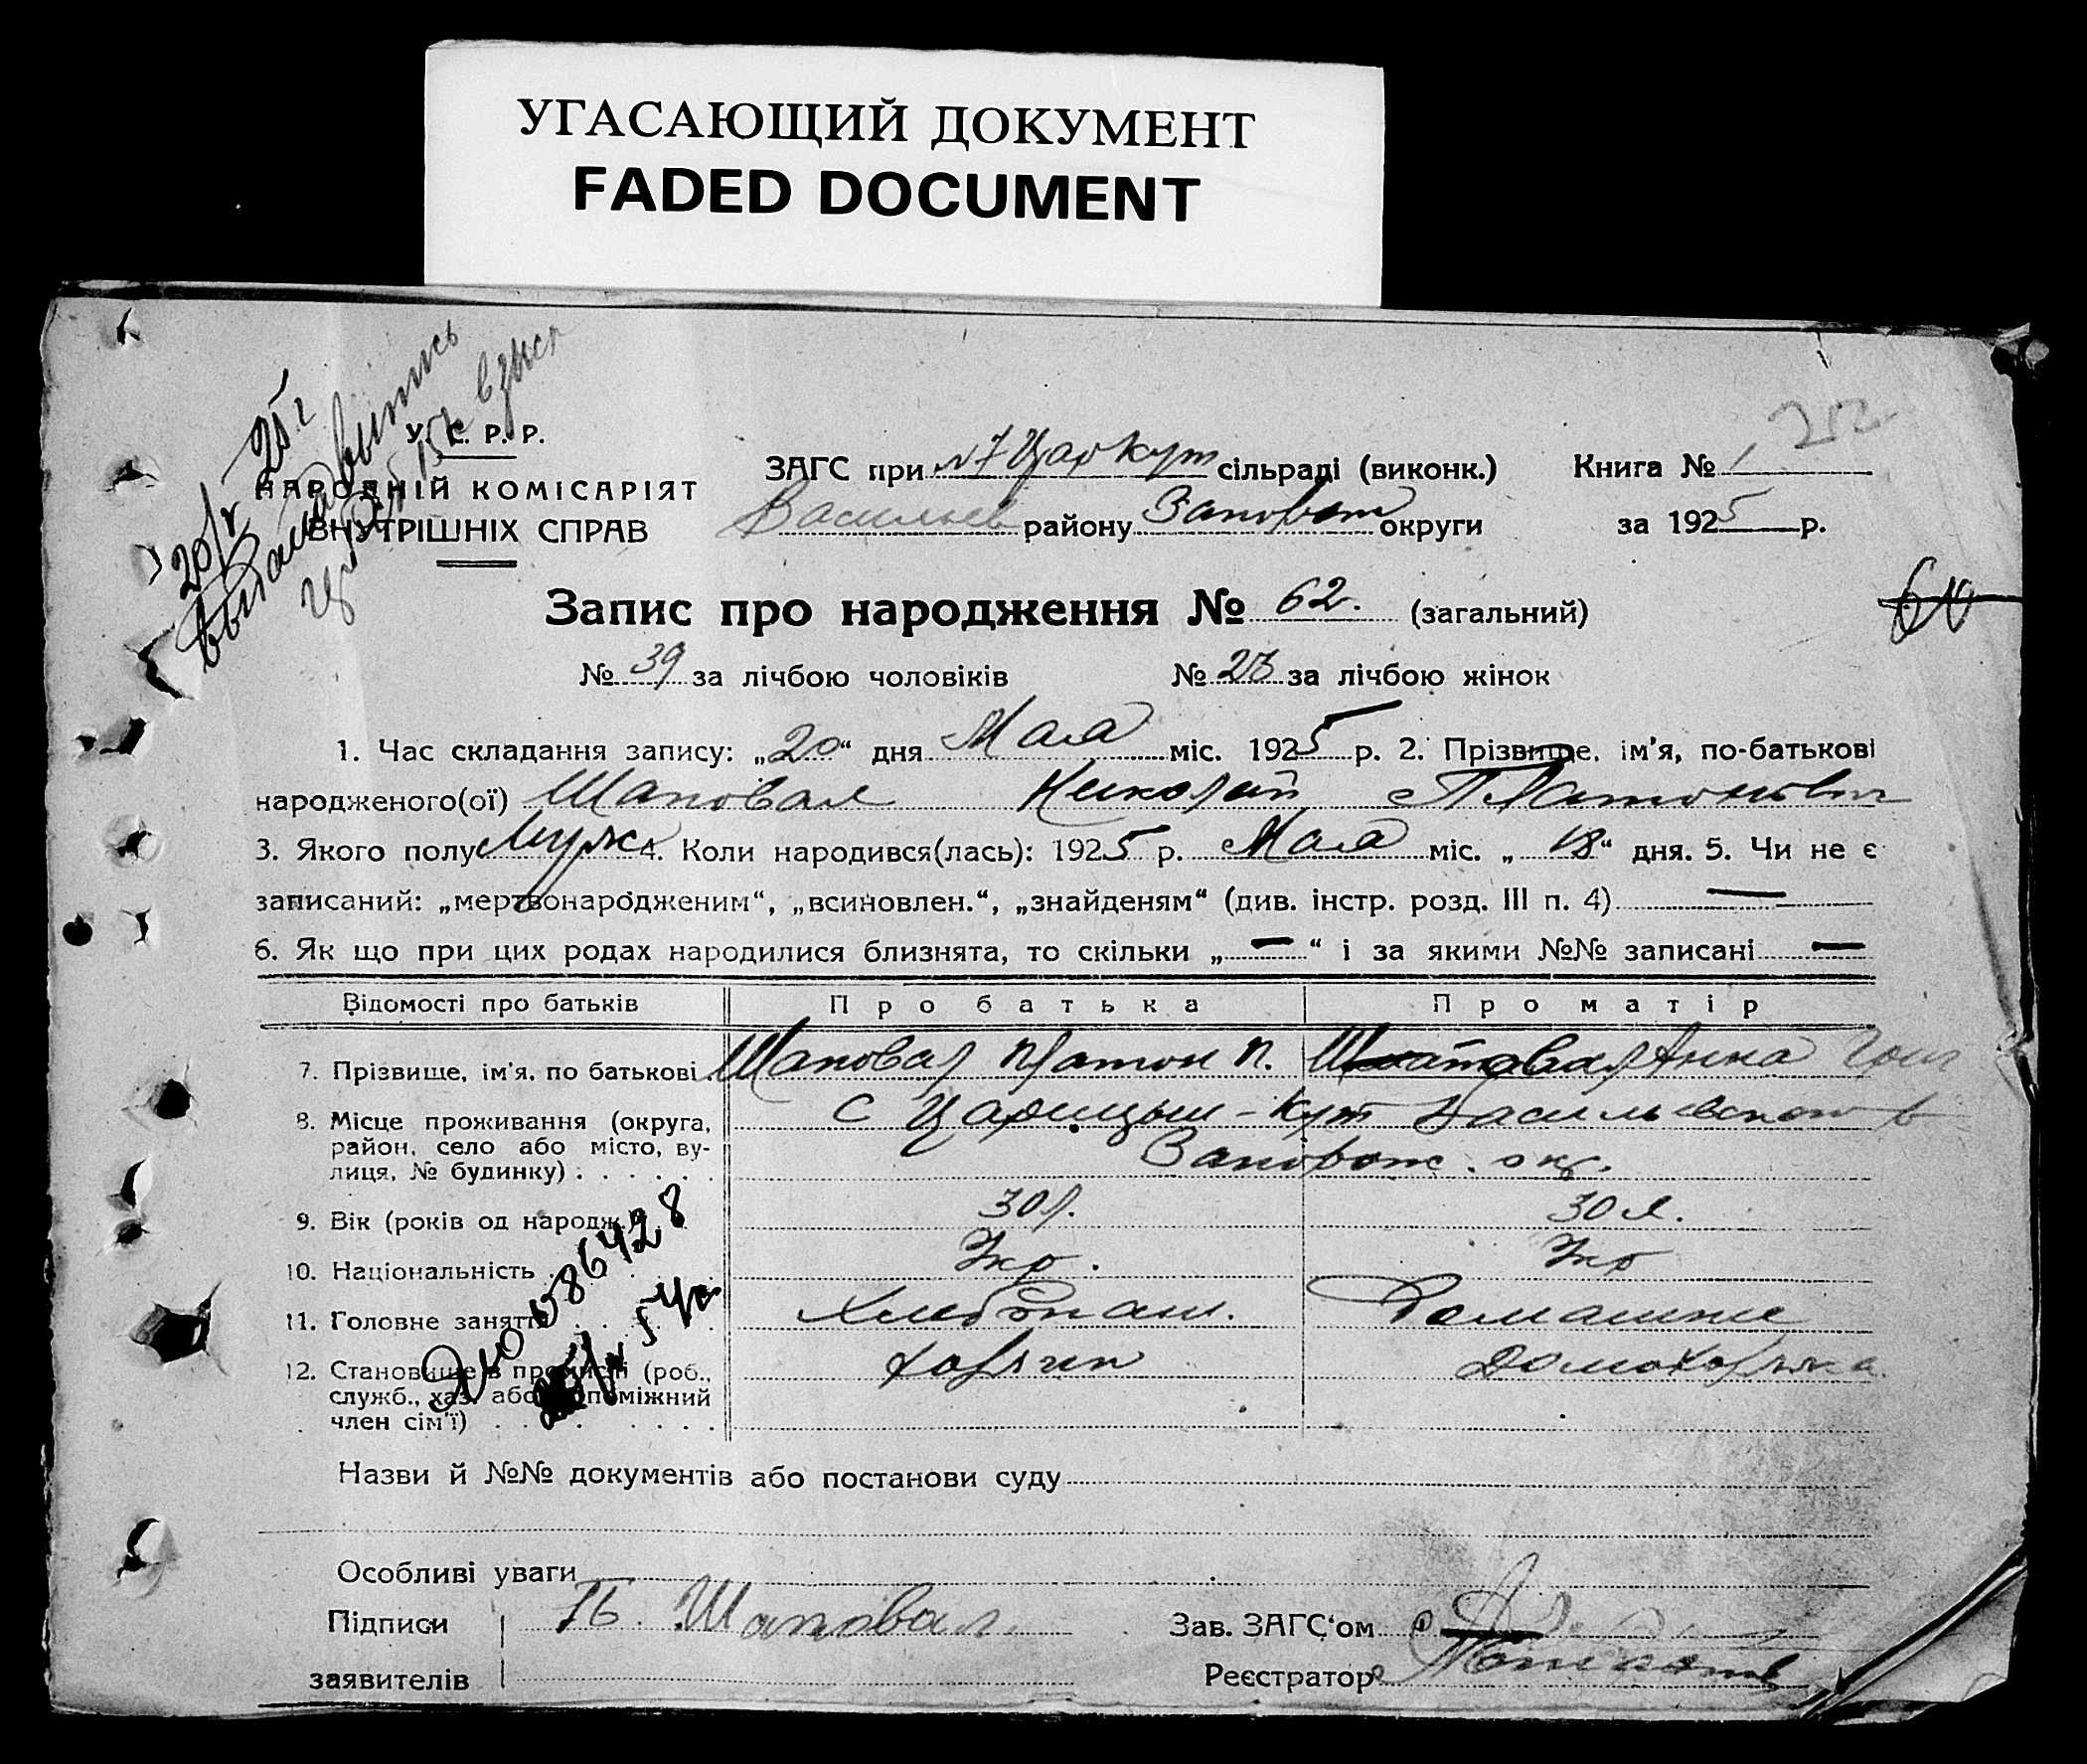 УГАСАЮЩИЙ ДОКУМЕНТ
FADED DOCUMENT
У. С. Р. Р.
НАРОДНІЙ КОМІСАРІЯТ
ВНУТРІШНІХ СПРАВ
ЗАГС при Цар Кут сільраді (виконк.) Книга № 1
Васильев району Запорож округи за 1925 р.
Запис про народження № 62. (загальний)
№ 39 за лічбою чоловіків № 23 за лічбою жінок
1. Час складання запису: „20“ дня Мая міс. 1925 р. 2. Прізвище, ім'я, по-батькові
народженого(ої) Шаповал Николай Платонович
3. Якого полу Мужс 4. Коли народився(лась): 1925 р. Мая міс. „18“ дня. 5. Чи не є
записаний: „мертвонародженим“, „всиновлен.“, „знайденям“ (див. інстр. розд. III п. 4) —
6. Як що при цих родах народилися близнята, то скільки „—“ і за якими №№ записані —
Відомості про батьків Про батька Про матір
7. Прізвище, ім'я, по батькові Шаповал Платон П. Шаповал Анна
8. Місце проживання (округа, с Царицын-Кут Васильевского
район, село або місто, ву-
лиця, № будинку) Запорож. окр.
9. Вік (років од народж. 30 л. 30 л.
10. Національність Укр. Укр
11. Головне заняття Хлебопаш. Домашние
12. Становище в промислі (роб., Хозяин Домохозяйка
служб., хаз. або допоміжний
член сім'ї)
Назви й №№ документів або постанови суду
Особливі уваги
Підписи Шаповал Зав. ЗАГС'ом
заявителів Реєстратор